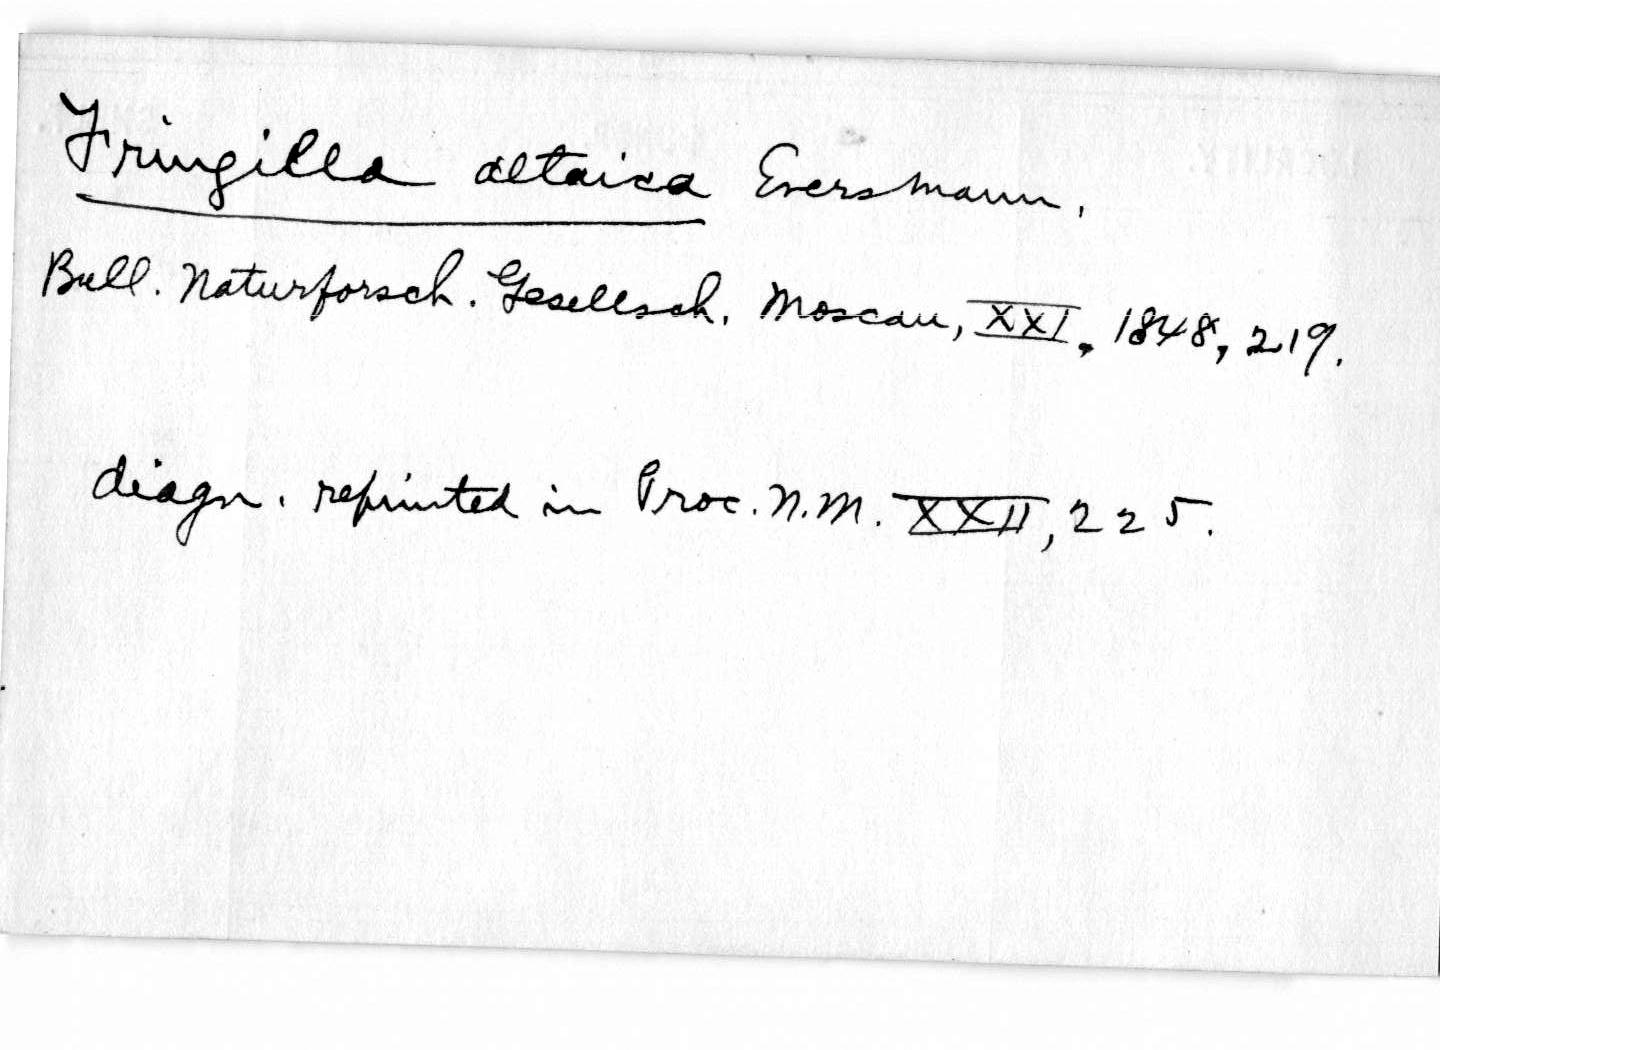 Fringilla altaica Eversmann.
Bull. Naturforsch. Gesellsch. Moscau, XXI, 1848, 219.
diagn. reprinted in Proc. N.M. XXII, 225.